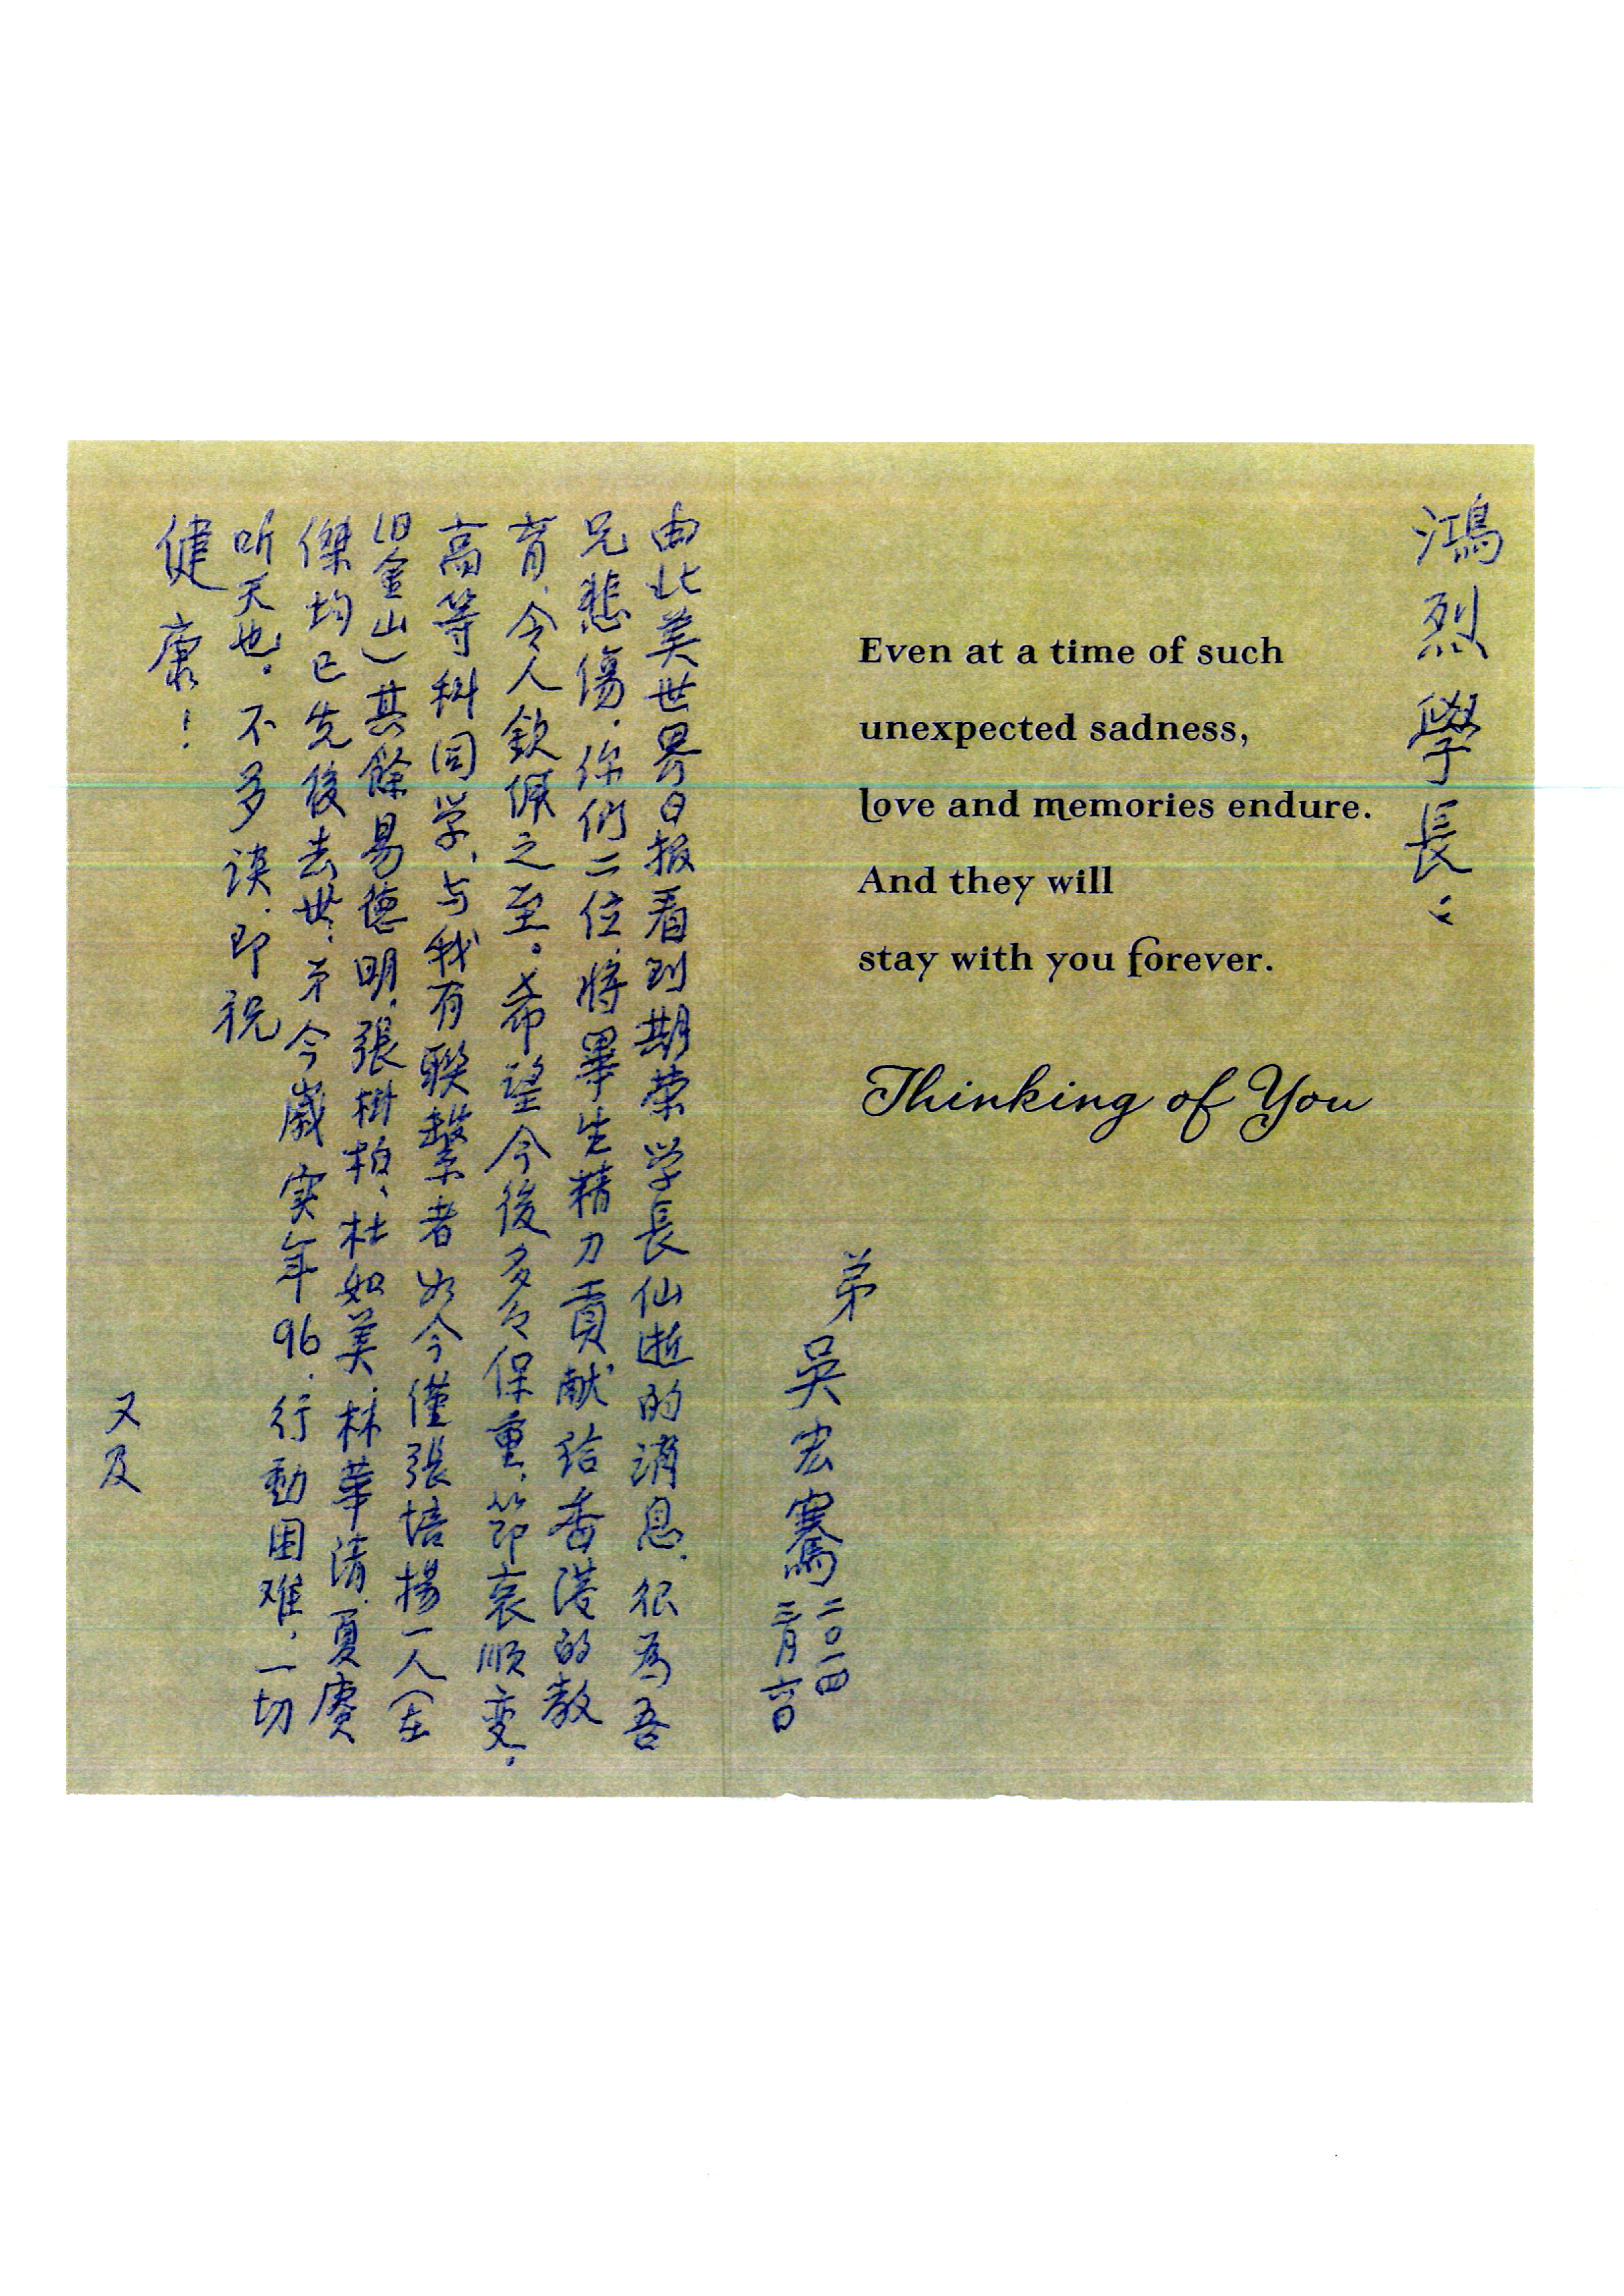 鴻烈學長：
Even at a time of such
unexpected sadness,
love and memories endure.
And they will
stay with you forever.
Thinking of You
弟吳宏騫
二〇一四
三月六日
由北美世界日报看到期荣学長仙逝的消息.很為吾
兄悲傷.你們二位.將畢生精力貢献给香港的教
育.令人欽佩之至。希望今後多々保重.節哀順变.
高等科同学、与我有聯繫者如今僅張培揚一人(在
旧金山)其餘易德明.張樹柏、杜如美.林華清.夏賡
傑均已先後去世.弟今歲实年96.行動困难.一切
听天也。不多谈.即祝
健康！
又及